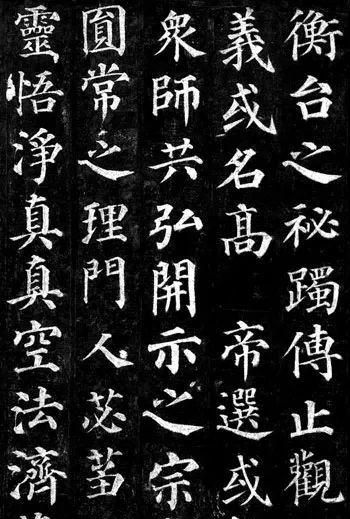 衡台之祕躅傳止觀
義或名高 帝選或
衆師共弘開示之宗
圓常之理門人苾蒭
靈悟淨真真空法濟